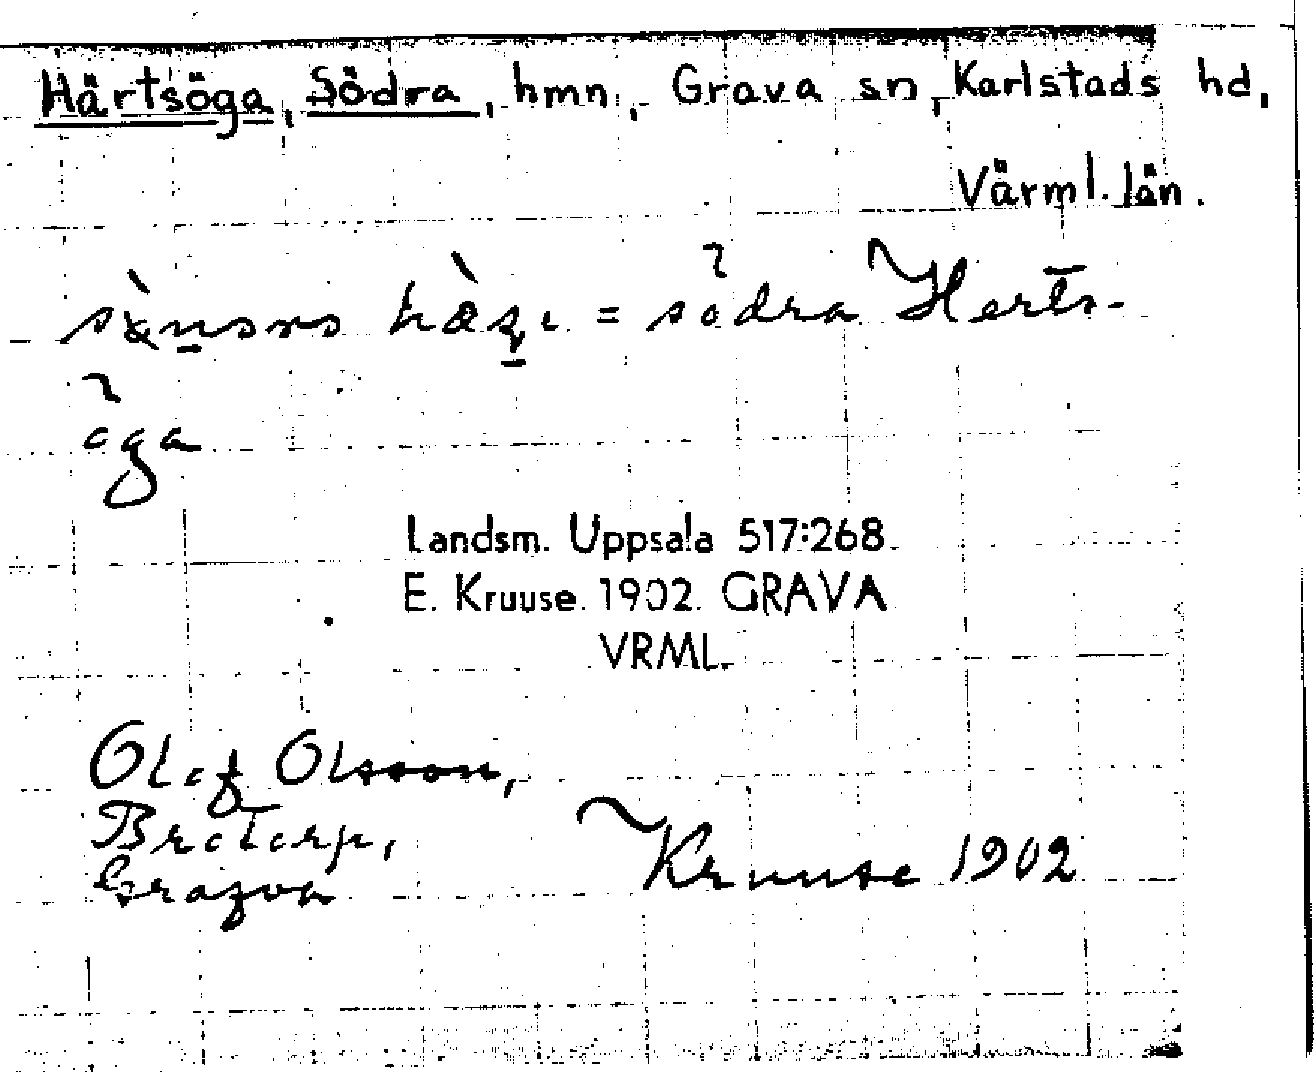 Härtsöga, Södra, hmn, Grava sn, Karlstads hd,
Värml. län.
= södra Herts-
öga
Landsm. Uppsala 517:268.
E. Kruuse. 1902. GRAVA
VRML.
Olof Olsson,
Brotorp,
Grafva
Kruuse 1902